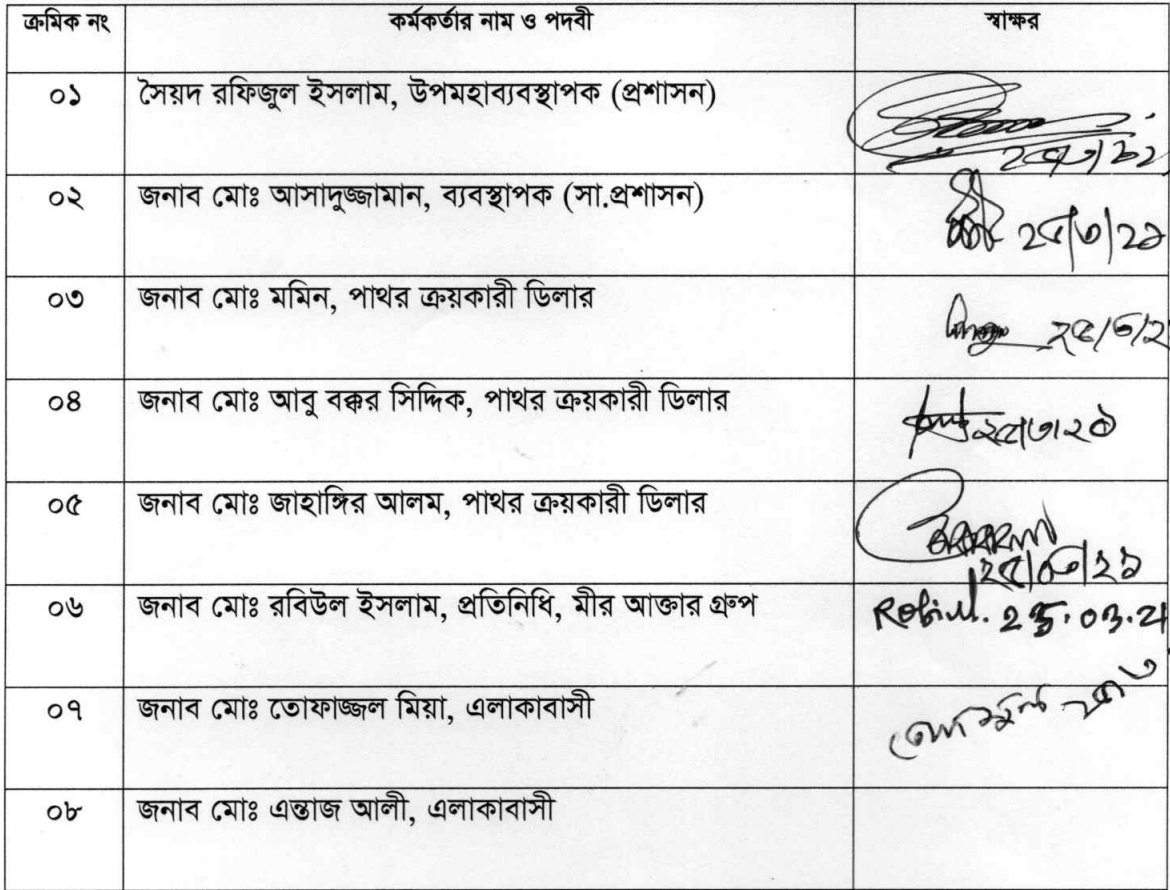 ক্রমিক নং কর্মকর্তার নাম ও পদবী স্বাক্ষর
০১ সৈয়দ রফিজুল ইসলাম, উপমহাব্যবস্থাপক (প্রশাসন)
০২ জনাব মোঃ আসাদুজ্জামান, ব্যবস্থাপক (সা.প্রশাসন) ২৫/৩/২১
০৩ জনাব মোঃ মমিন, পাথর ক্রয়কারী ডিলার
০৪ জনাব মোঃ আবু বক্কর সিদ্দিক, পাথর ক্রয়কারী ডিলার
০৫ জনাব মোঃ জাহাঙ্গির আলম, পাথর ক্রয়কারী ডিলার
২৫/০৩/২১
০৬ জনাব মোঃ রবিউল ইসলাম, প্রতিনিধি, মীর আক্তার গ্রুপ Robiul. 25.03.21
০৭ জনাব মোঃ তোফাজ্জল মিয়া, এলাকাবাসী
০৮ জনাব মোঃ এন্তাজ আলী, এলাকাবাসী